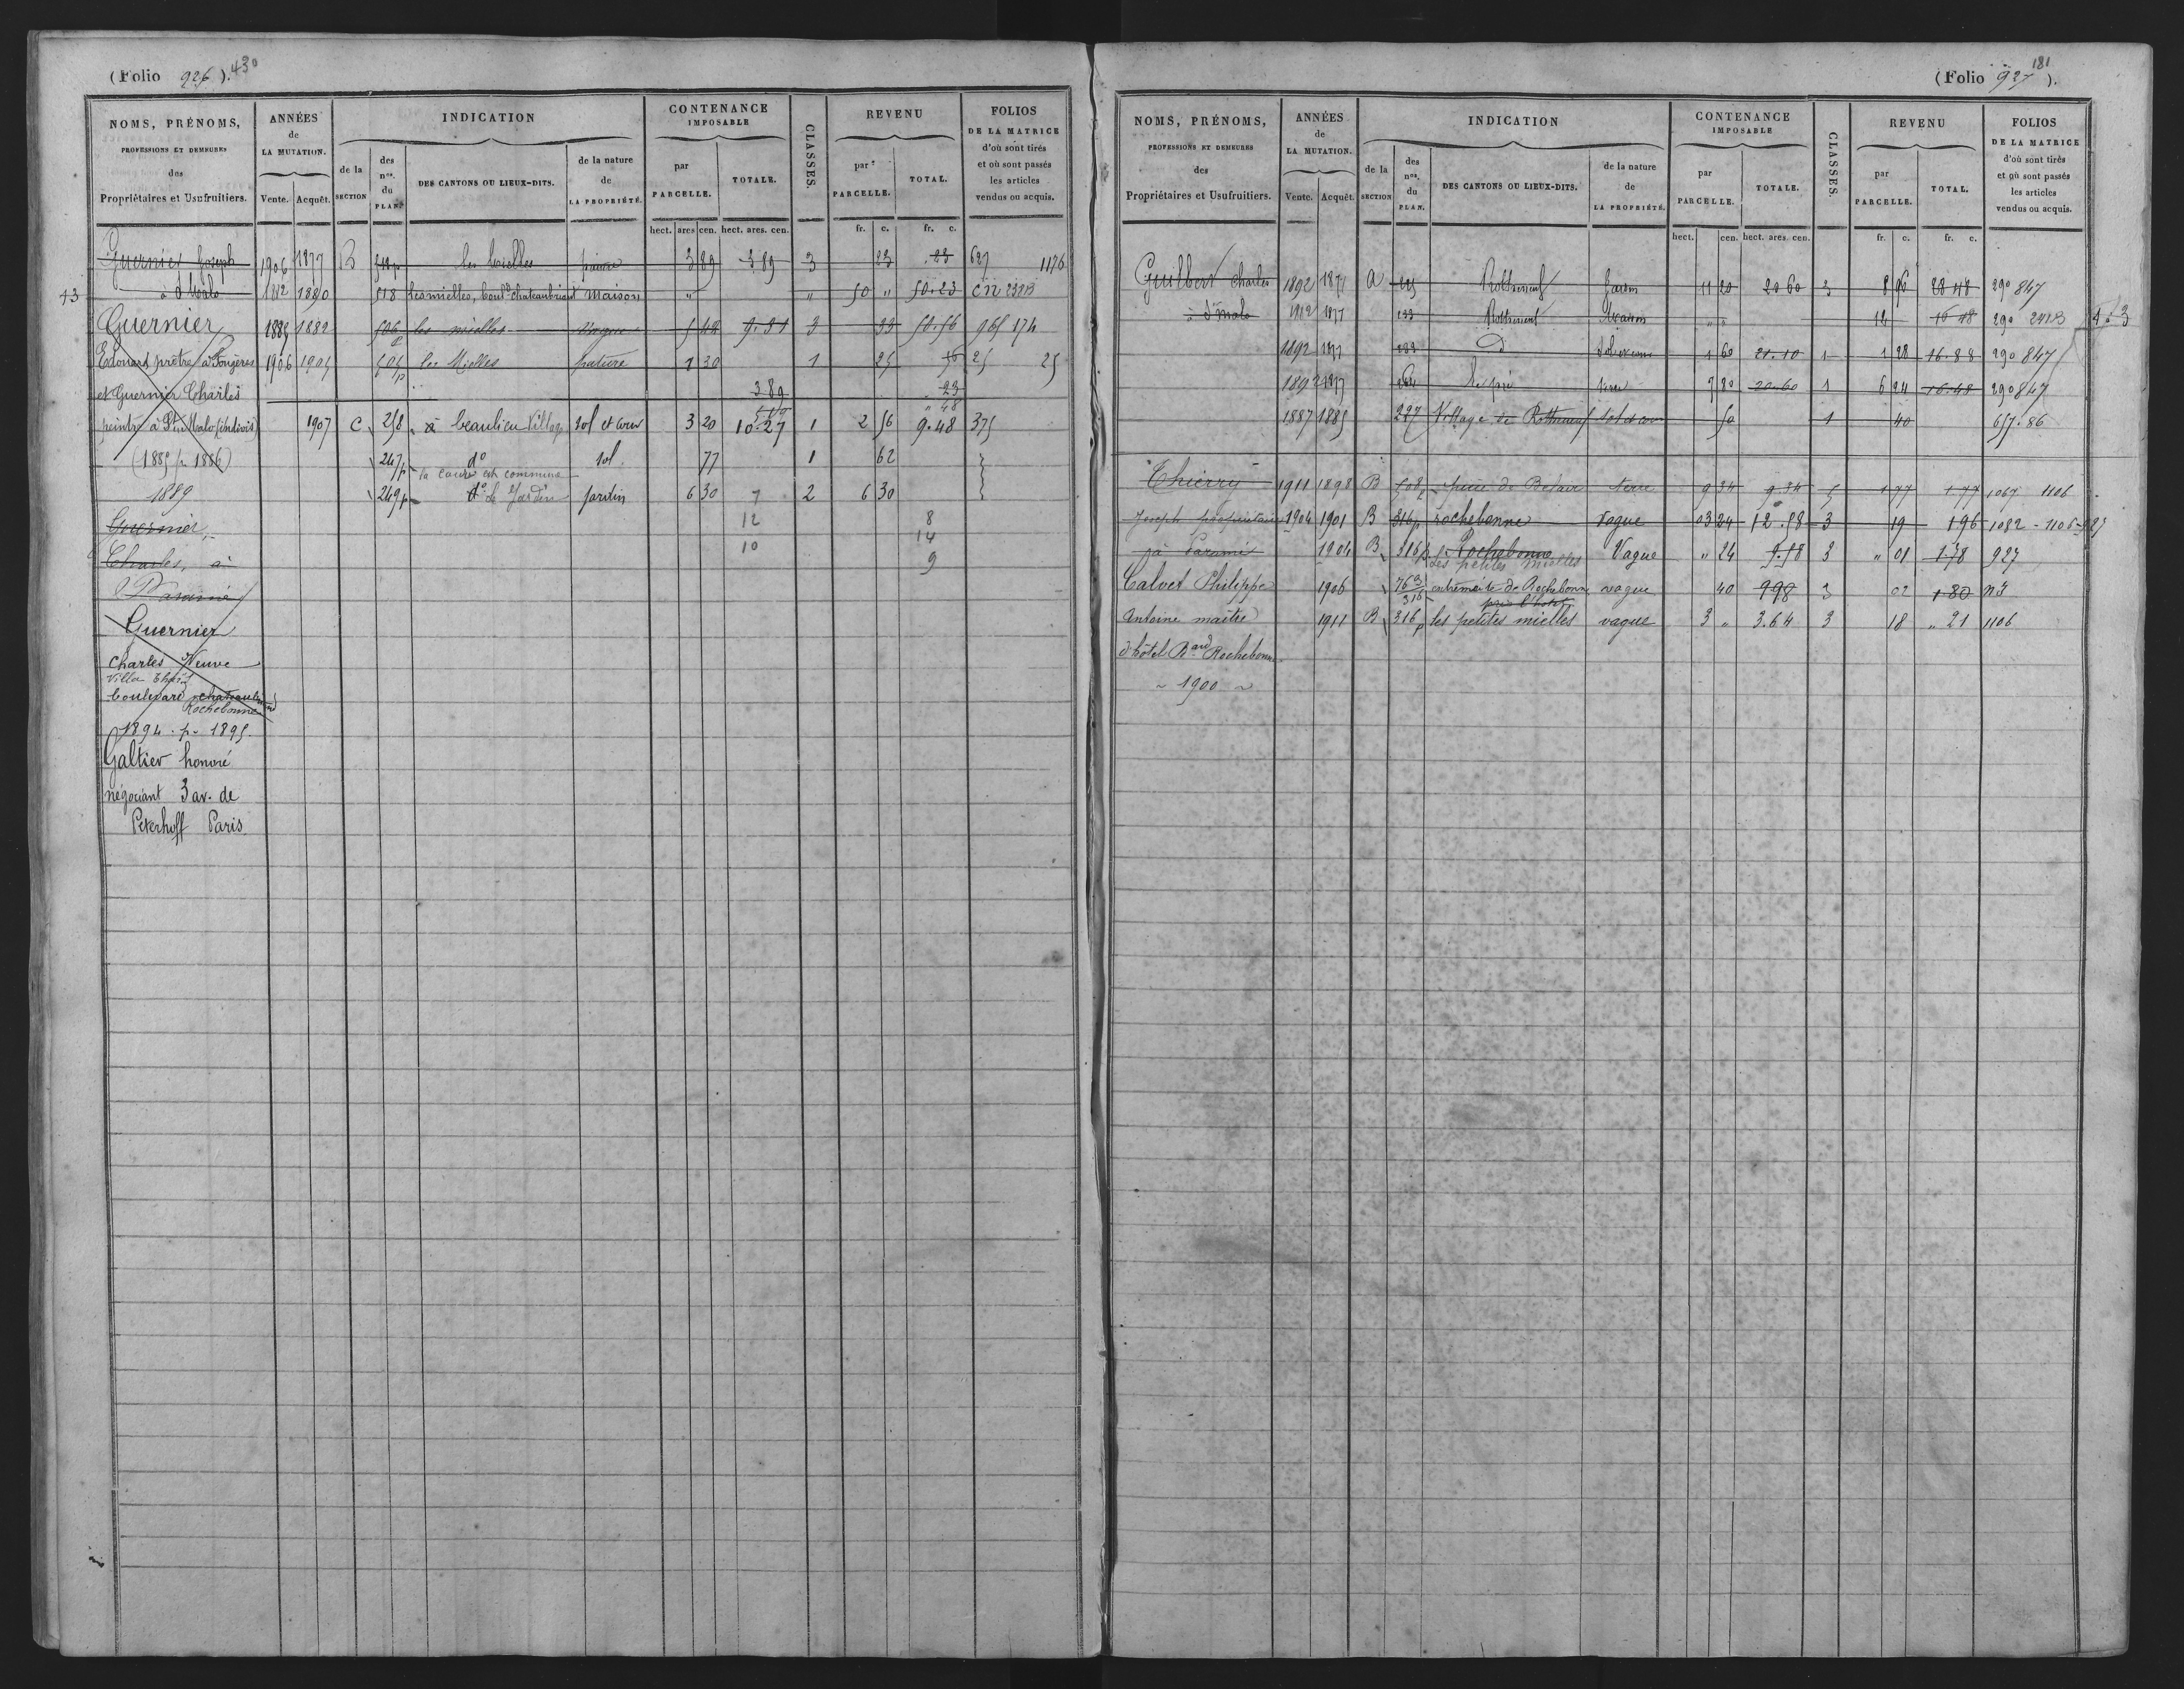 (Folio 926). 430
NOMS, PRÉNOMS,
PROFESSIONS ET DEMEURES
des
Propriétaires et Usufruitiers.
ANNÉES
de
LA MUTATION.
Vente. Acquêt.
INDICATION
de la
SECTION
des
nos.
du
PLAN.
DES CANTONS OU LIEUX-DITS.
de la nature
de
LA PROPRIÉTÉ.
CONTENANCE
IMPOSABLE
par
PARCELLE.
TOTALE.
hect. ares cen. hect. ares. cen.
CLASSES.
REVENU
par
PARCELLE.
TOTAL.
fr. c. fr. c.
FOLIOS
DE LA MATRICE
d'où sont tirés
et où sont passés
les articles
vendus ou acquis.
Guernier Joseph 1906 1877 B 518p les Mielles 3 89 3 89 3 23 .23 627 1176
à St Malo 1880 518 les mielles, bould chateaubriant maison " " 50 " 50.23 cn
43
Guernier 1889 1882 506p les mielles vague 5 42 9.31 3 33 50.56 965 174
Edouard prêtre à Fougères 1906 1905 505p les Mielles pature 1 30 1 25 25 25
et Guernier Charles 3 89 .23
peintre à St Malo (indivis) 1907 C 258 à beaulieu Village sol et cour 3 20 10.27 1 2 56 9.48 375
(1885 p. 1886) 247p do sol 77 1 62
la cour est commune
1889 249p do le Jardin jardin 6 30 7 2 6 30
Guernier, 12 8
Charles, à 10 14
Paramé 9
Guernier
Charles Veuve
Villa
boulevard chateaubriand
Rochebonne
1894 . p. 1895.
Galtier honoré
négociant 3 av. de
Péterhoff Paris
(Folio 927). 181
NOMS, PRÉNOMS,
PROFESSIONS ET DEMEURES
des
Propriétaires et Usufruitiers.
ANNÉES
de
LA MUTATION.
Vente. Acquêt.
INDICATION
de la
SECTION
des
nos.
du
PLAN.
DES CANTONS OU LIEUX-DITS.
de la nature
de
LA PROPRIÉTÉ.
CONTENANCE
IMPOSABLE
par
PARCELLE.
TOTALE.
hect. cen. hect. ares. cen.
CLASSES.
REVENU
par
PARCELLE.
TOTAL.
fr. c. fr. c.
FOLIOS
DE LA MATRICE
d'où sont tirés
et où sont passés
les articles
vendus ou acquis.
Guilbert Charles 1892 1877 A Rothneuf Jardin 11 20 20 60 3 8 96 28 48 290 847
à St malo 1912 1877 233 Rothneuf Maison " " 12 290
1892 1877 232 do 1 60 21.10 1 1 28 16.88 290 847
1892 1877 le pré terre 7 80 20.60 1 6 24 16.48 290 847
1887 1885 227 Village de Rothneuf sol et cour 50 1 40 657.86
Thierry 1911 1898 B 508p de Belair terre 9 34 9.34 5 1 77 1.77 1067 1106
Joseph propriétaire 1904 1901 B 316p rochebonne vague 03 24 12.58 3 19 196 1082 - 1106 -
à Paramé 1904 B 316p Rochebonne Vague " 24 9.58 3 " 01 1.78 927
Les petites mielles
Calvet Philippe 1906 763/316 extrémité de Rochebonne vague 40 998 3 02 1.80
près l'hotel
Antoine maître 1911 B 316p les petites mielles vague 3 " 3.64 3 18 " 21 1106
d'hôtel Bard Rochebonne
~ 1900 ~